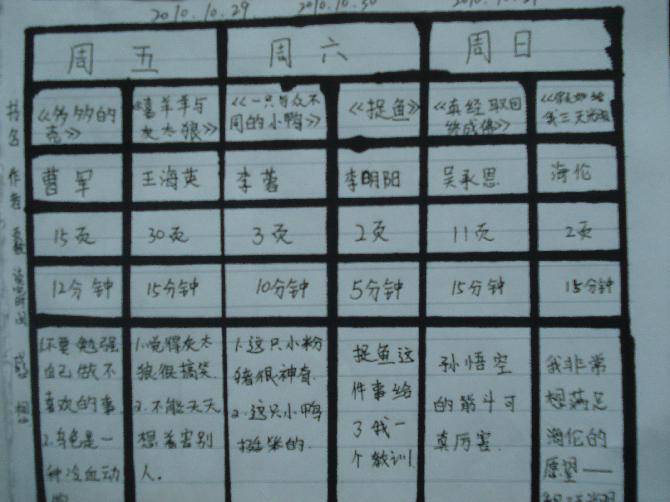 2010.10.29 2010.10.30
周五 周六 周日
书名
《爷爷的壳》 喜羊羊与灰太狼》 《一只与众不同的小鸭》 《捉鱼》 《真经取回终成佛》 我三天光明
作者
曹军 王海英 李蓉 李明阳 吴承恩 海伦
页数
15页 30页 3页 2页 11页 2页
12分钟 15分钟 10分钟 5分钟 15分钟 15分钟
感想
1.不要勉强自己做不喜欢的事
2.乌龟是一种冷血动
1.觉得灰太狼很搞笑
2.不能天天想着害别人.
1.这只小粉猪很神奇.
2.这只小鸭挺笨的.
捉鱼这件事给了我一个教训
孙悟空的筋斗可真厉害.
我非常想满足海伦的愿望——